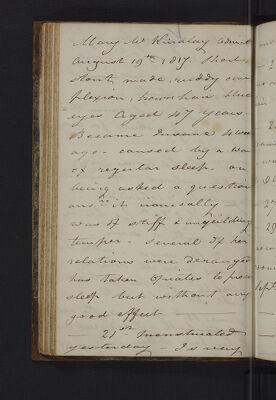 Mary McKinlay admitt
August 19th 1817. Short
stout made, ruddy com
plexion, brown hair blue
eyes Aged 47 years.
Became Insane 4 wee
ago - caused by a wan
of regular sleep. on
being asked a question
ansrs it
was of stiff & unyielding
temper - several of her
relations were deranged
has taken Opiates to pro
sleep but without any
good effect
21st Menstruated
yesterday Is very